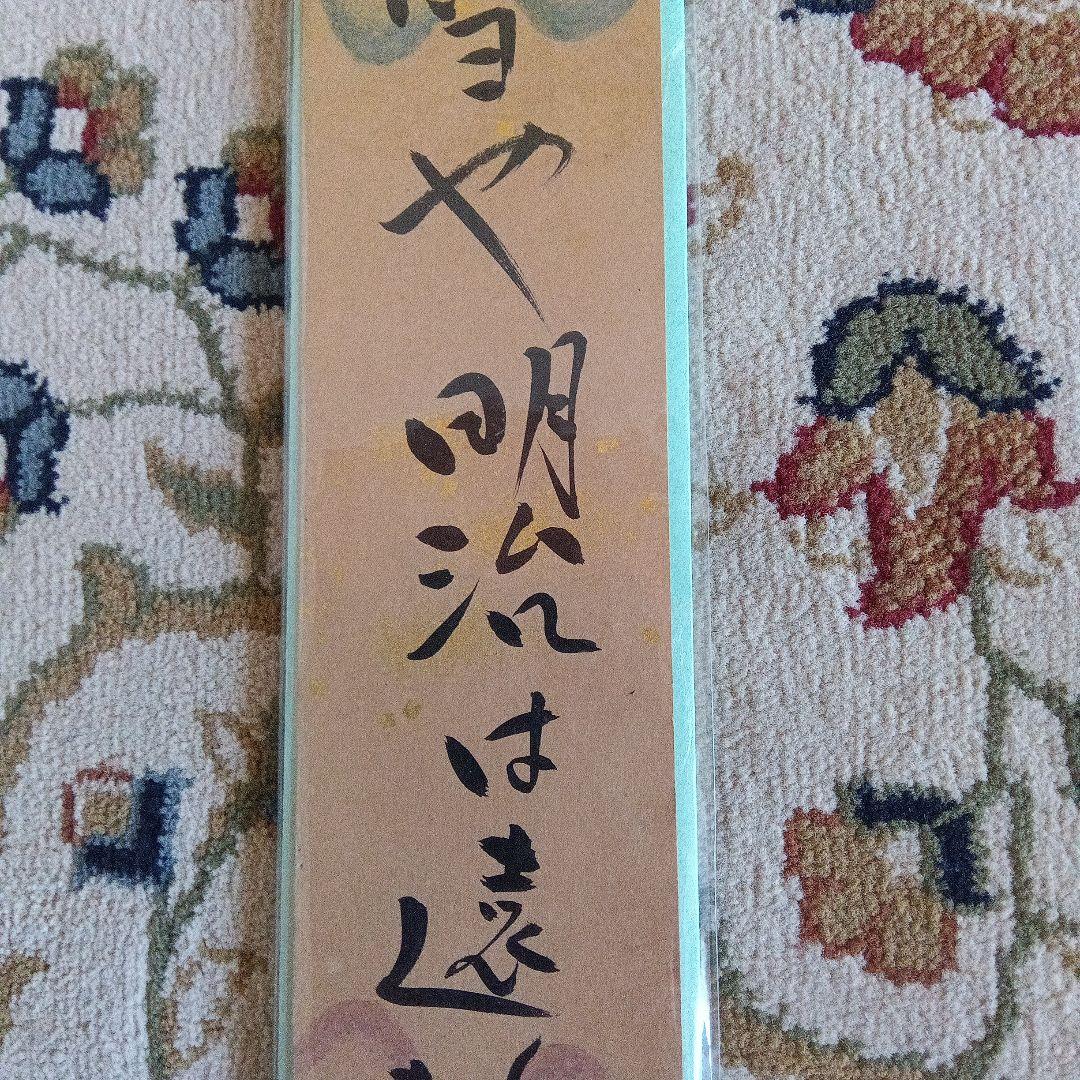 雪や明治は遠く